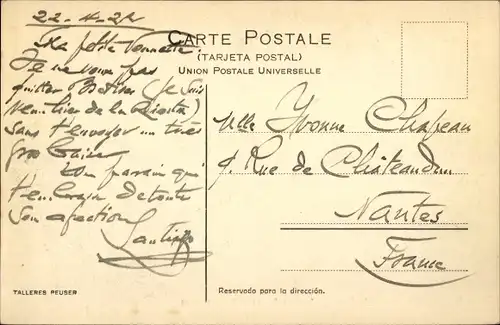 22-4-22
CARTE POSTALE
(TARJETA POSTAL)
UNION POSTALE UNIVERSELLE
Ma petite Yvonnette
Je ne veux pas
quitter (Je suis
de la)
sans t'envoyer un très
gros baiser
Ton parrain qui
t'embrasse de toute
son afection
Santiago
Mlle Yvonne Chapeau
9. Rue de Châteaudun
Nantes
France
TALLERES PEUSER
Reservado para la dirección.